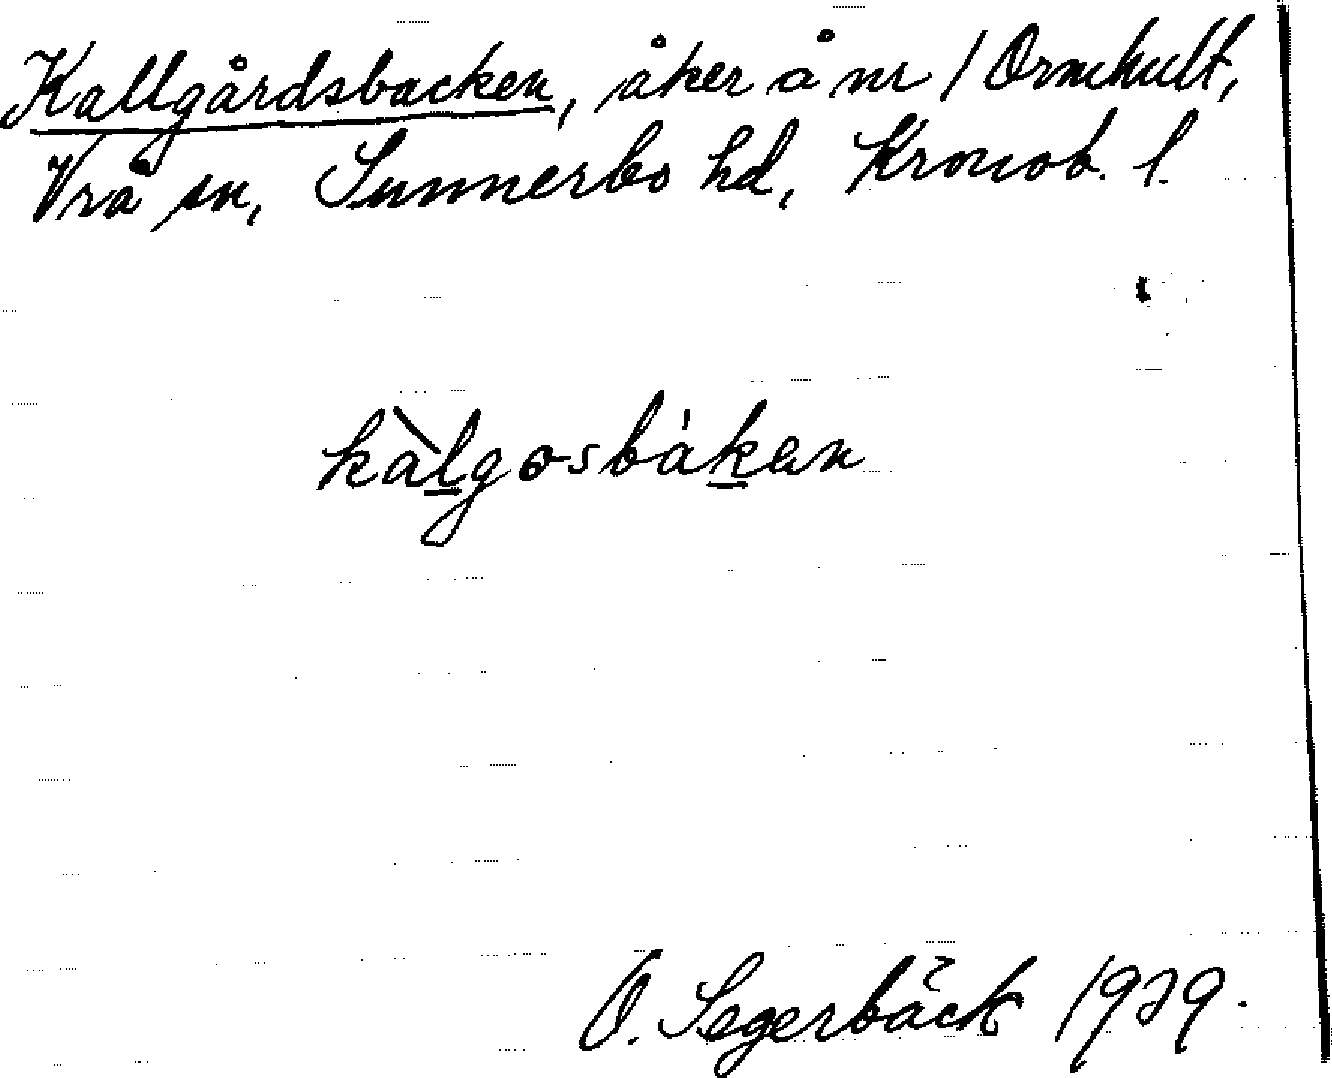 Kallgårdsbacken, åker å nr 1 Ormhult,
Vrå sn, Sunnerbo hd, Kronob. l.
kàlgosbákan
O. Segerbäck 1929.